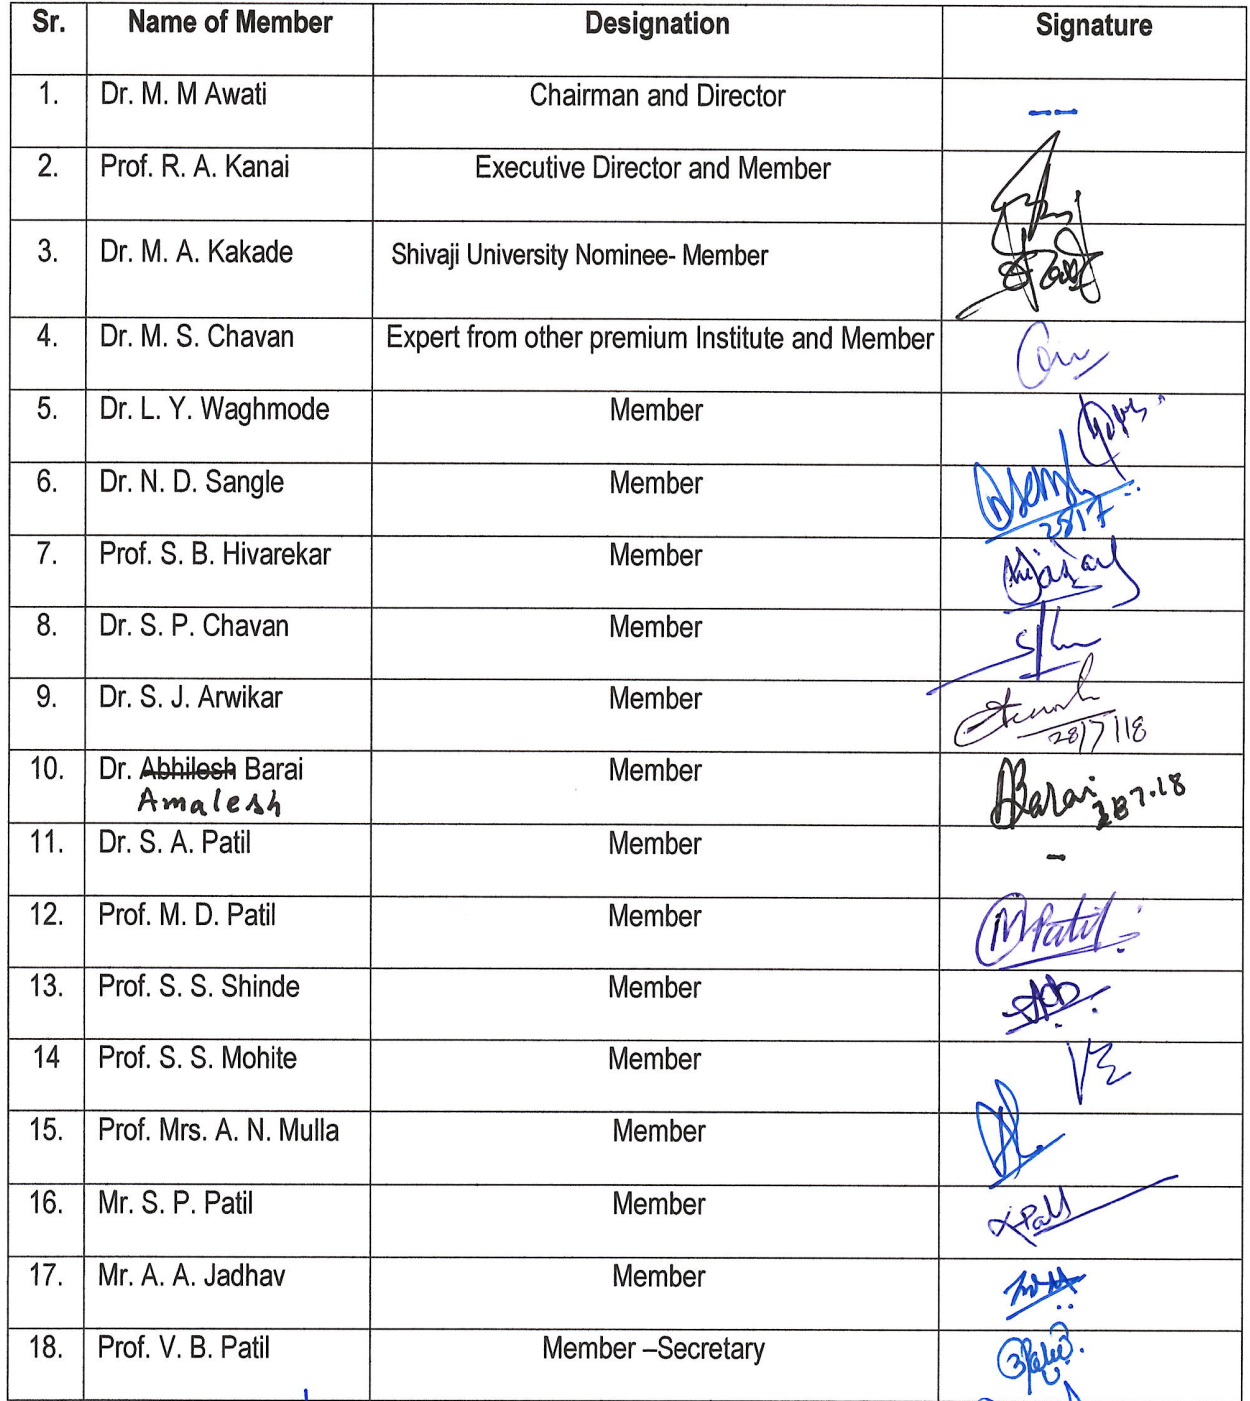 Sr. Name of Member Designation Signature
1. Dr. M. M Awati Chairman and Director --
2. Prof. R. A. Kanai Executive Director and Member
3. Dr. M. A. Kakade Shivaji University Nominee- Member
4. Dr. M. S. Chavan Expert from other premium Institute and Member
5. Dr. L. Y. Waghmode Member
6. Dr. N. D. Sangle Member
2817
7. Prof. S. B. Hivarekar Member
8. Dr. S. P. Chavan Member
9. Dr. S. J. Arwikar Member
28/7/18
10. Dr. Abhilesh Barai Member ABarai
Amalesh
11. Dr. S. A. Patil Member -
12. Prof. M. D. Patil Member MPatil
13. Prof. S. S. Shinde Member
14 Prof. S. S. Mohite Member
15. Prof. Mrs. A. N. Mulla Member
16. Mr. S. P. Patil Member
17. Mr. A. A. Jadhav Member
18. Prof. V. B. Patil Member –Secretary